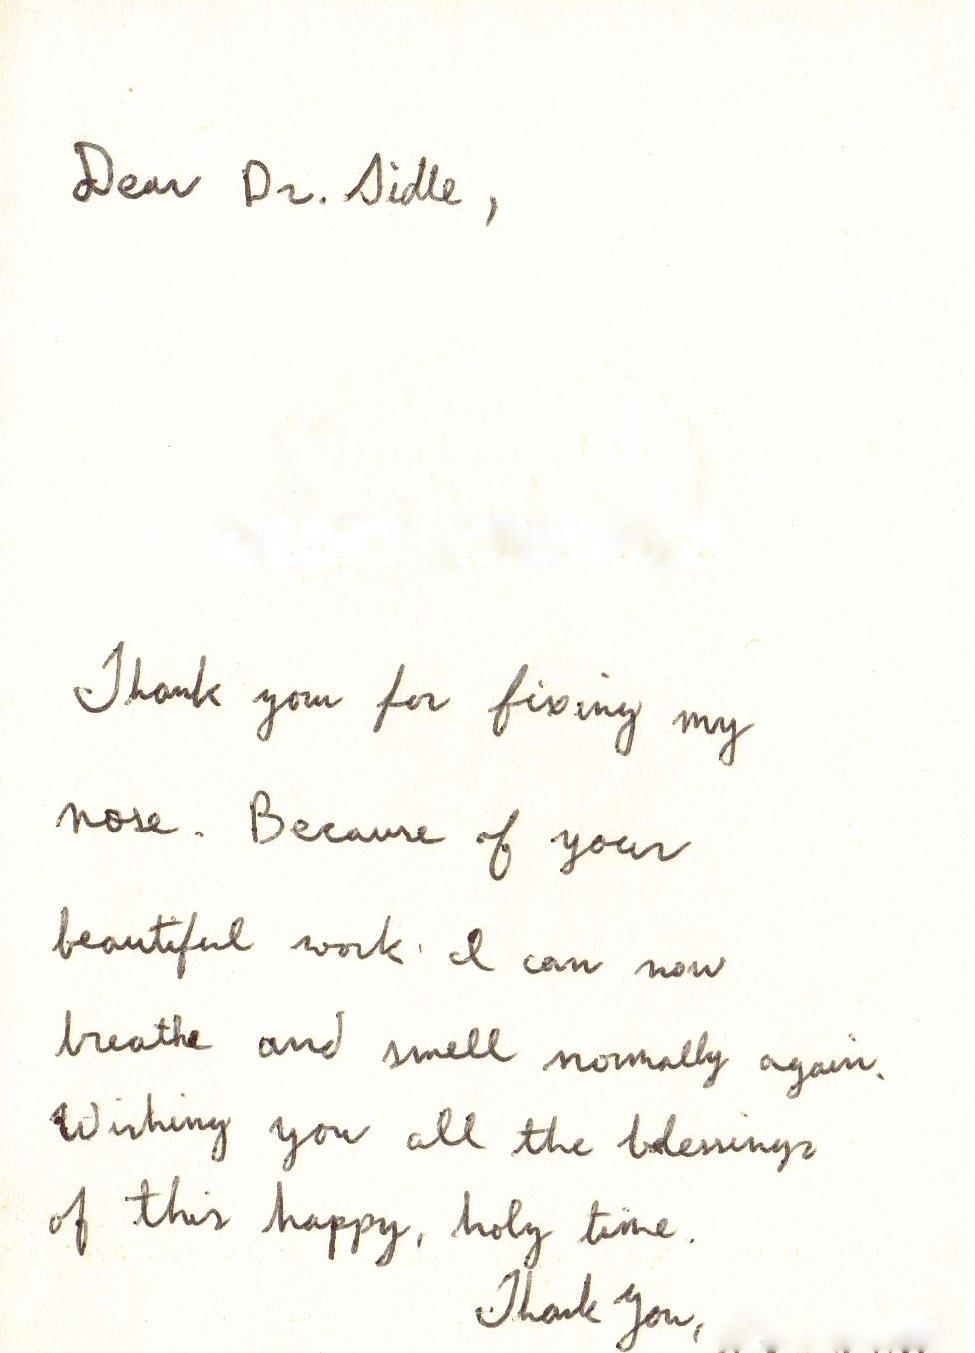 Dear Dr. Sidle,
Thank you for fixing my
nose. Because of your
beautiful work I can now
breathe and smell normally again.
Wishing you all the blessings
of this happy, holy time.
Thank You,